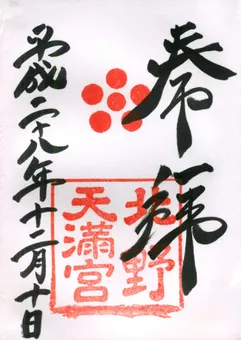 奉拝
北野
天満宮
平成二十八年十二月十日